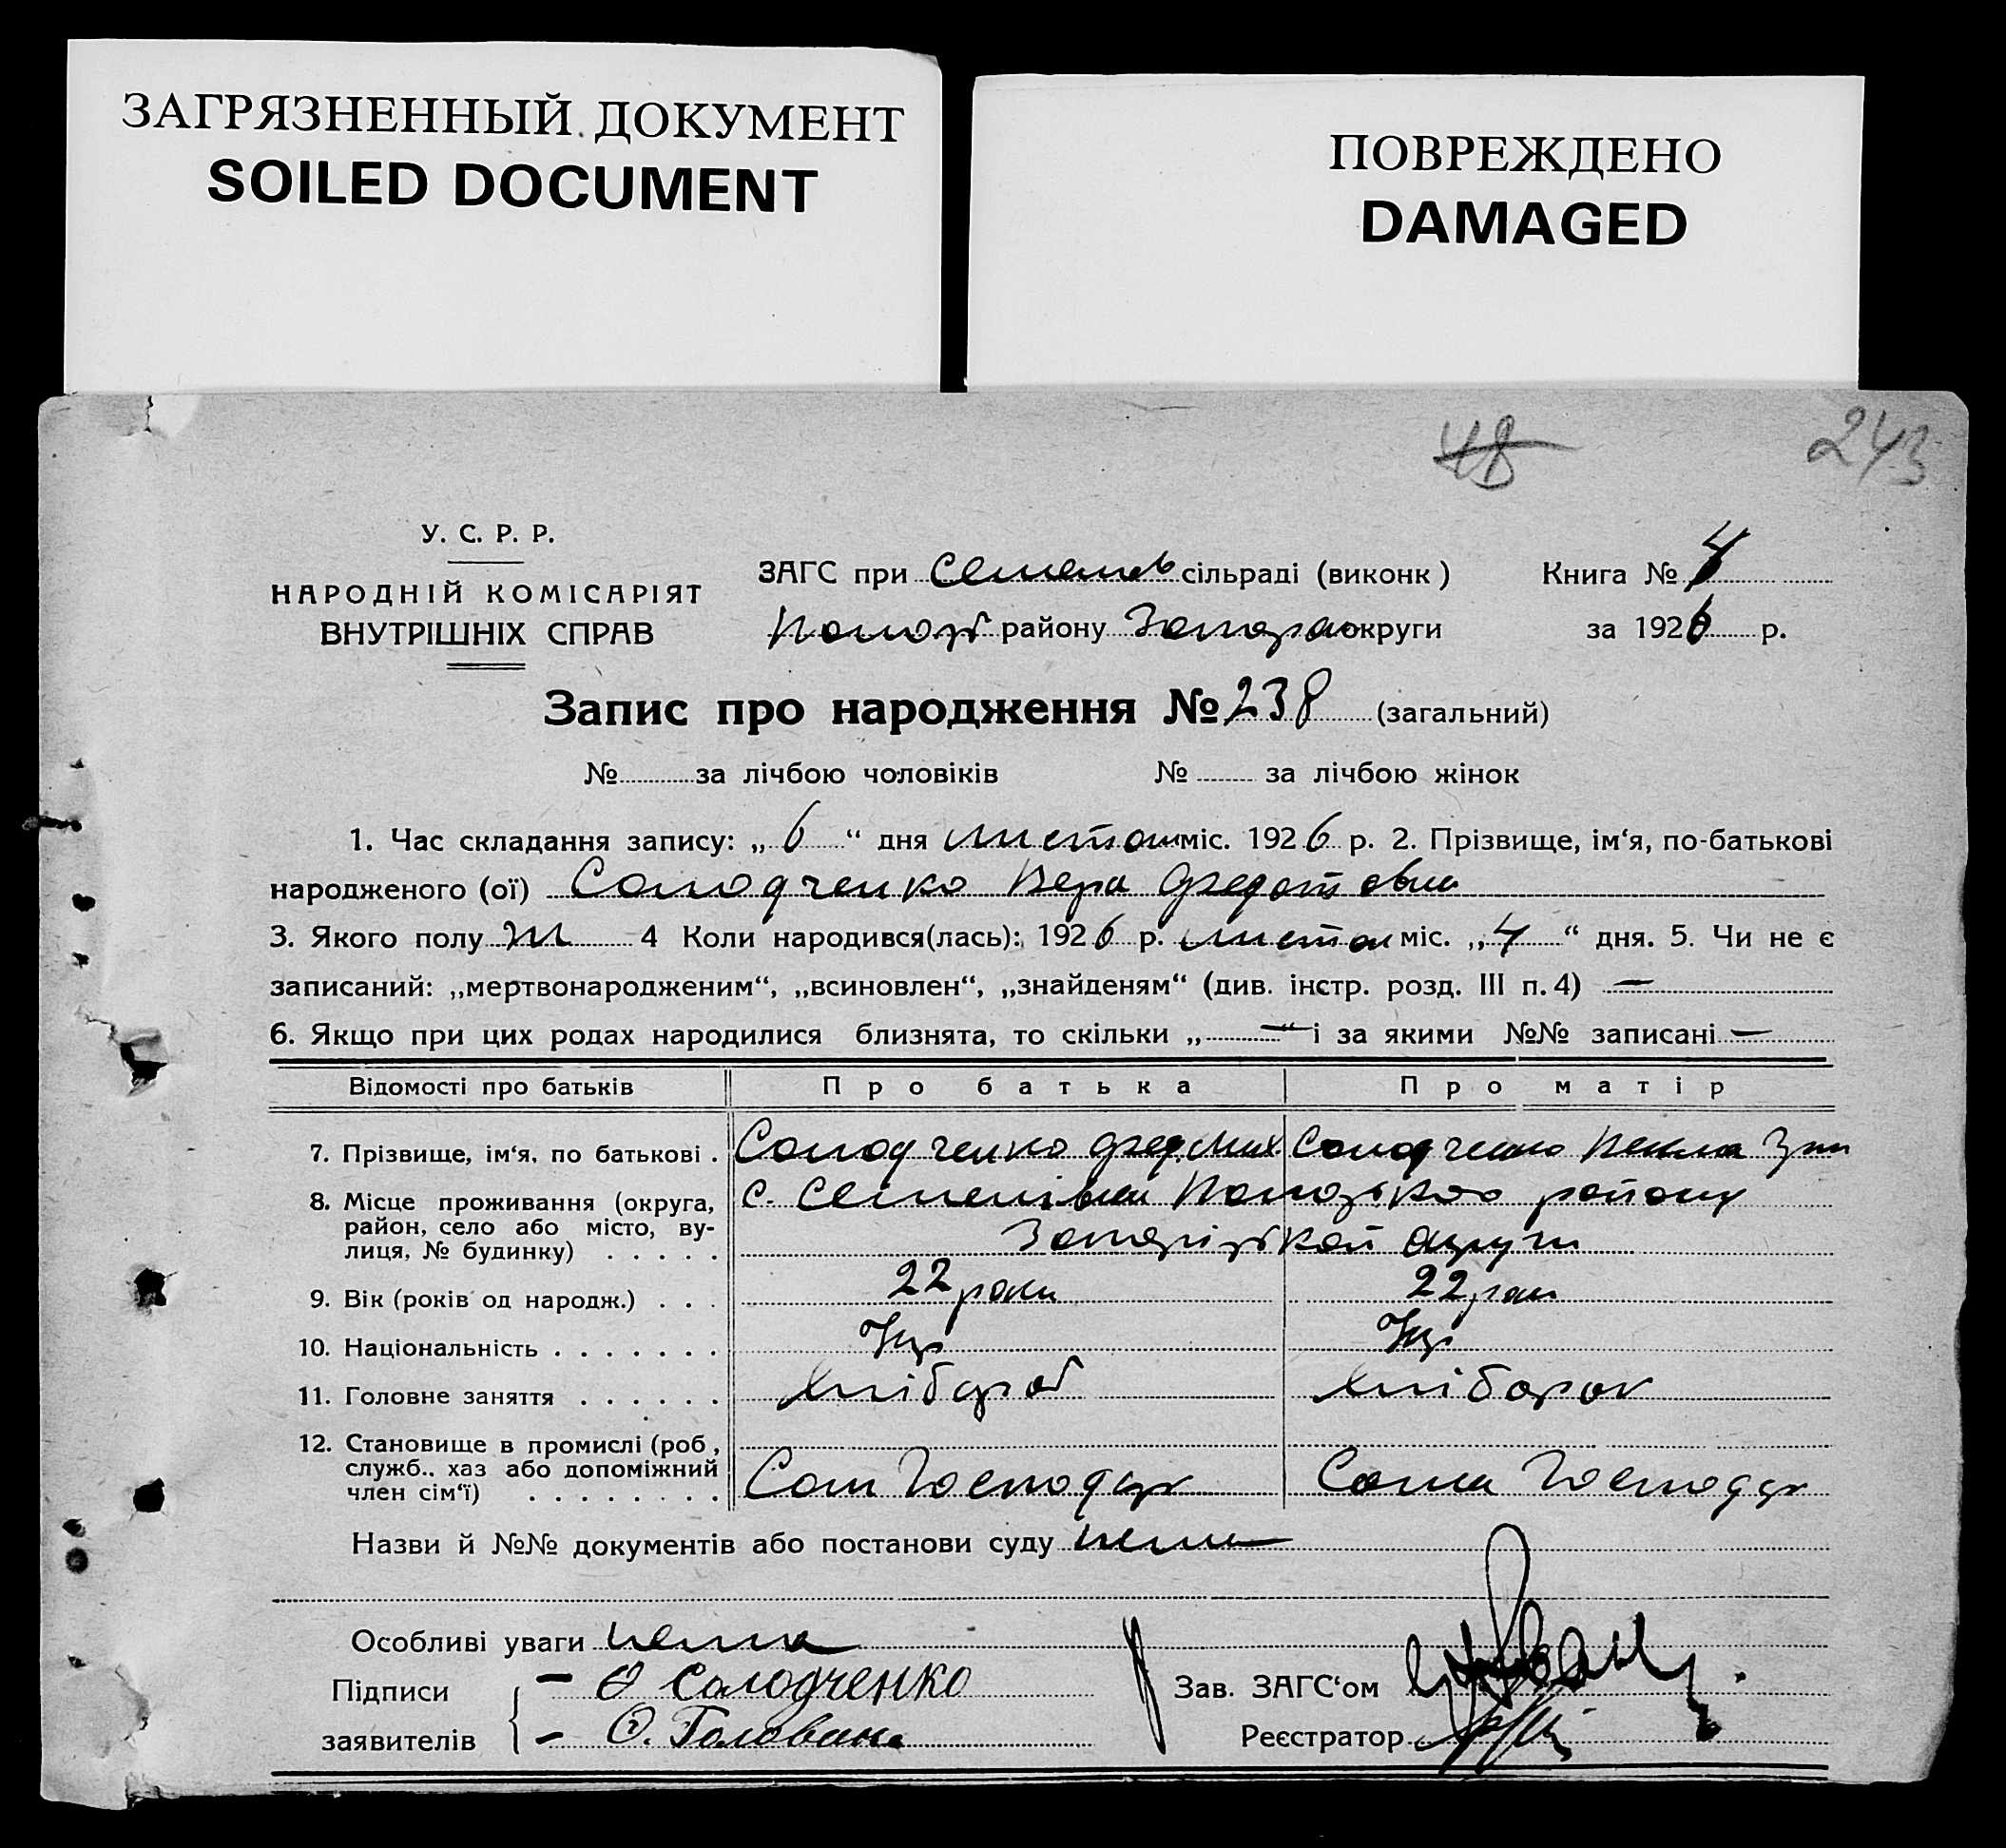 ЗАГРЯЗНЕННЫЙ ДОКУМЕНТ
SOILED DOCUMENT
ПОВРЕЖДЕНО
DAMAGED
48
243
У. С. Р. Р.
НАРОДНІЙ КОМІСАРІЯТ
ВНУТРІШНІХ СПРАВ
ЗАГС при Семенів сільраді (виконк)
Книга № 4
Пологів району Запоріж округи
за 1926 р.
Запис про народження № 238 (загальний)
№ за лічбою чоловіків № за лічбою жінок
1. Час складання запису: „ 6 “ дня листопа міс. 1926 р. 2. Прізвище, ім‘я, по-батькові
народженого (ої) Солодченко Вера Федотовна
3. Якого полу Ж 4 Коли народився(лась): 1926 р. листоп міс. „ 4 “ дня. 5. Чи не є
записаний: „мертвонародженим“, „всиновлен“, „знайденям“ (див. інстр. розд. III п. 4) —
6. Якщо при цих родах народилися близнята, то скільки „ — “ і за якими №№ записані —
Відомості про батьків Про батька Про матір
7. Прізвище, ім‘я, по батькові . Солодченко Фед. Мих. Солодченко Пекла
8. Місце проживання (округа, с. Семенівка Пологівского району
район, село або місто, ву-
лиця, № будинку) . . . . . Запорізької округи
9. Вік (років од народж.) . . . 22 роки 22 роки
10. Національність . . . . . . . Укр Укр
11. Головне заняття . . . . . . Хлібороб Хлібороб
12. Становище в промислі (роб,
служб.. хаз або допоміжний
член сім‘ї) . . . . . . . . Сам Господар Сама Господар
Назви й №№ документів або постанови суду нема
Особливі уваги нема
Підписи — Ф Солодченко Зав. ЗАГС‘ом
заявителів — Ф. Головань Реєстратор